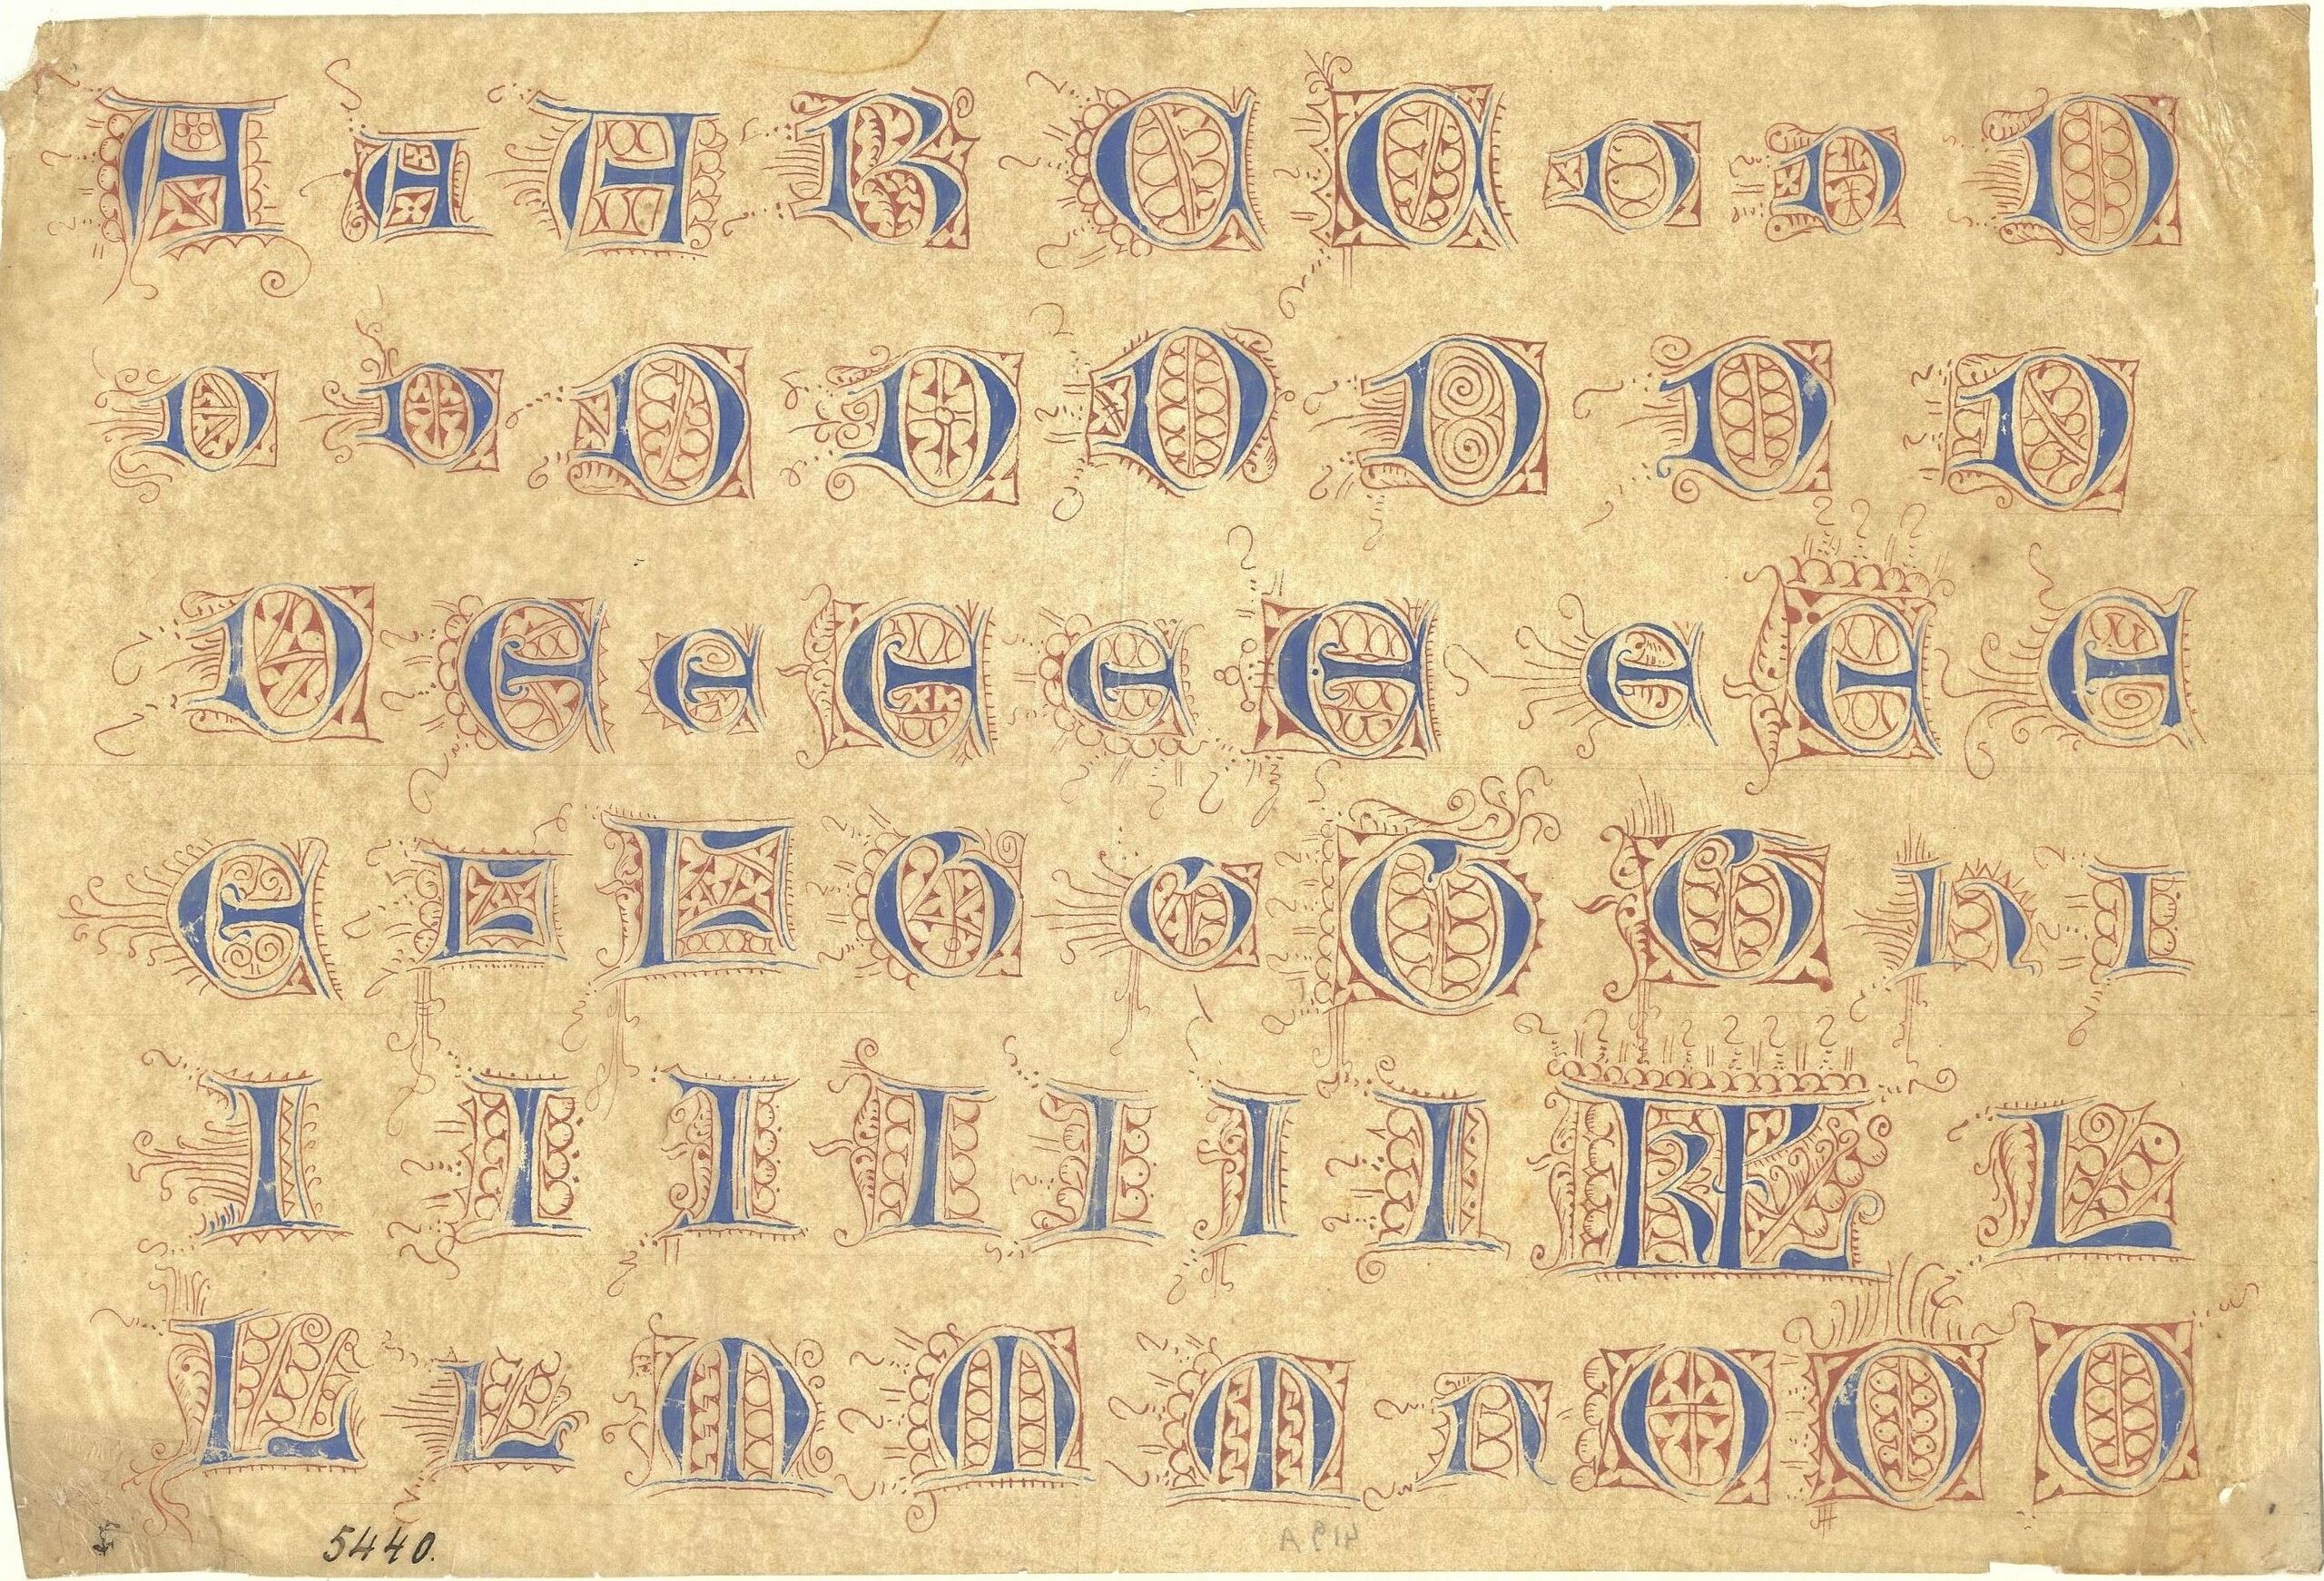 A A A B C C D D D
D D D D D D D D
D E E E E E E E E
E F F G G G G h I
I I I I I I I KL L
L L M M M n O O O
5440.